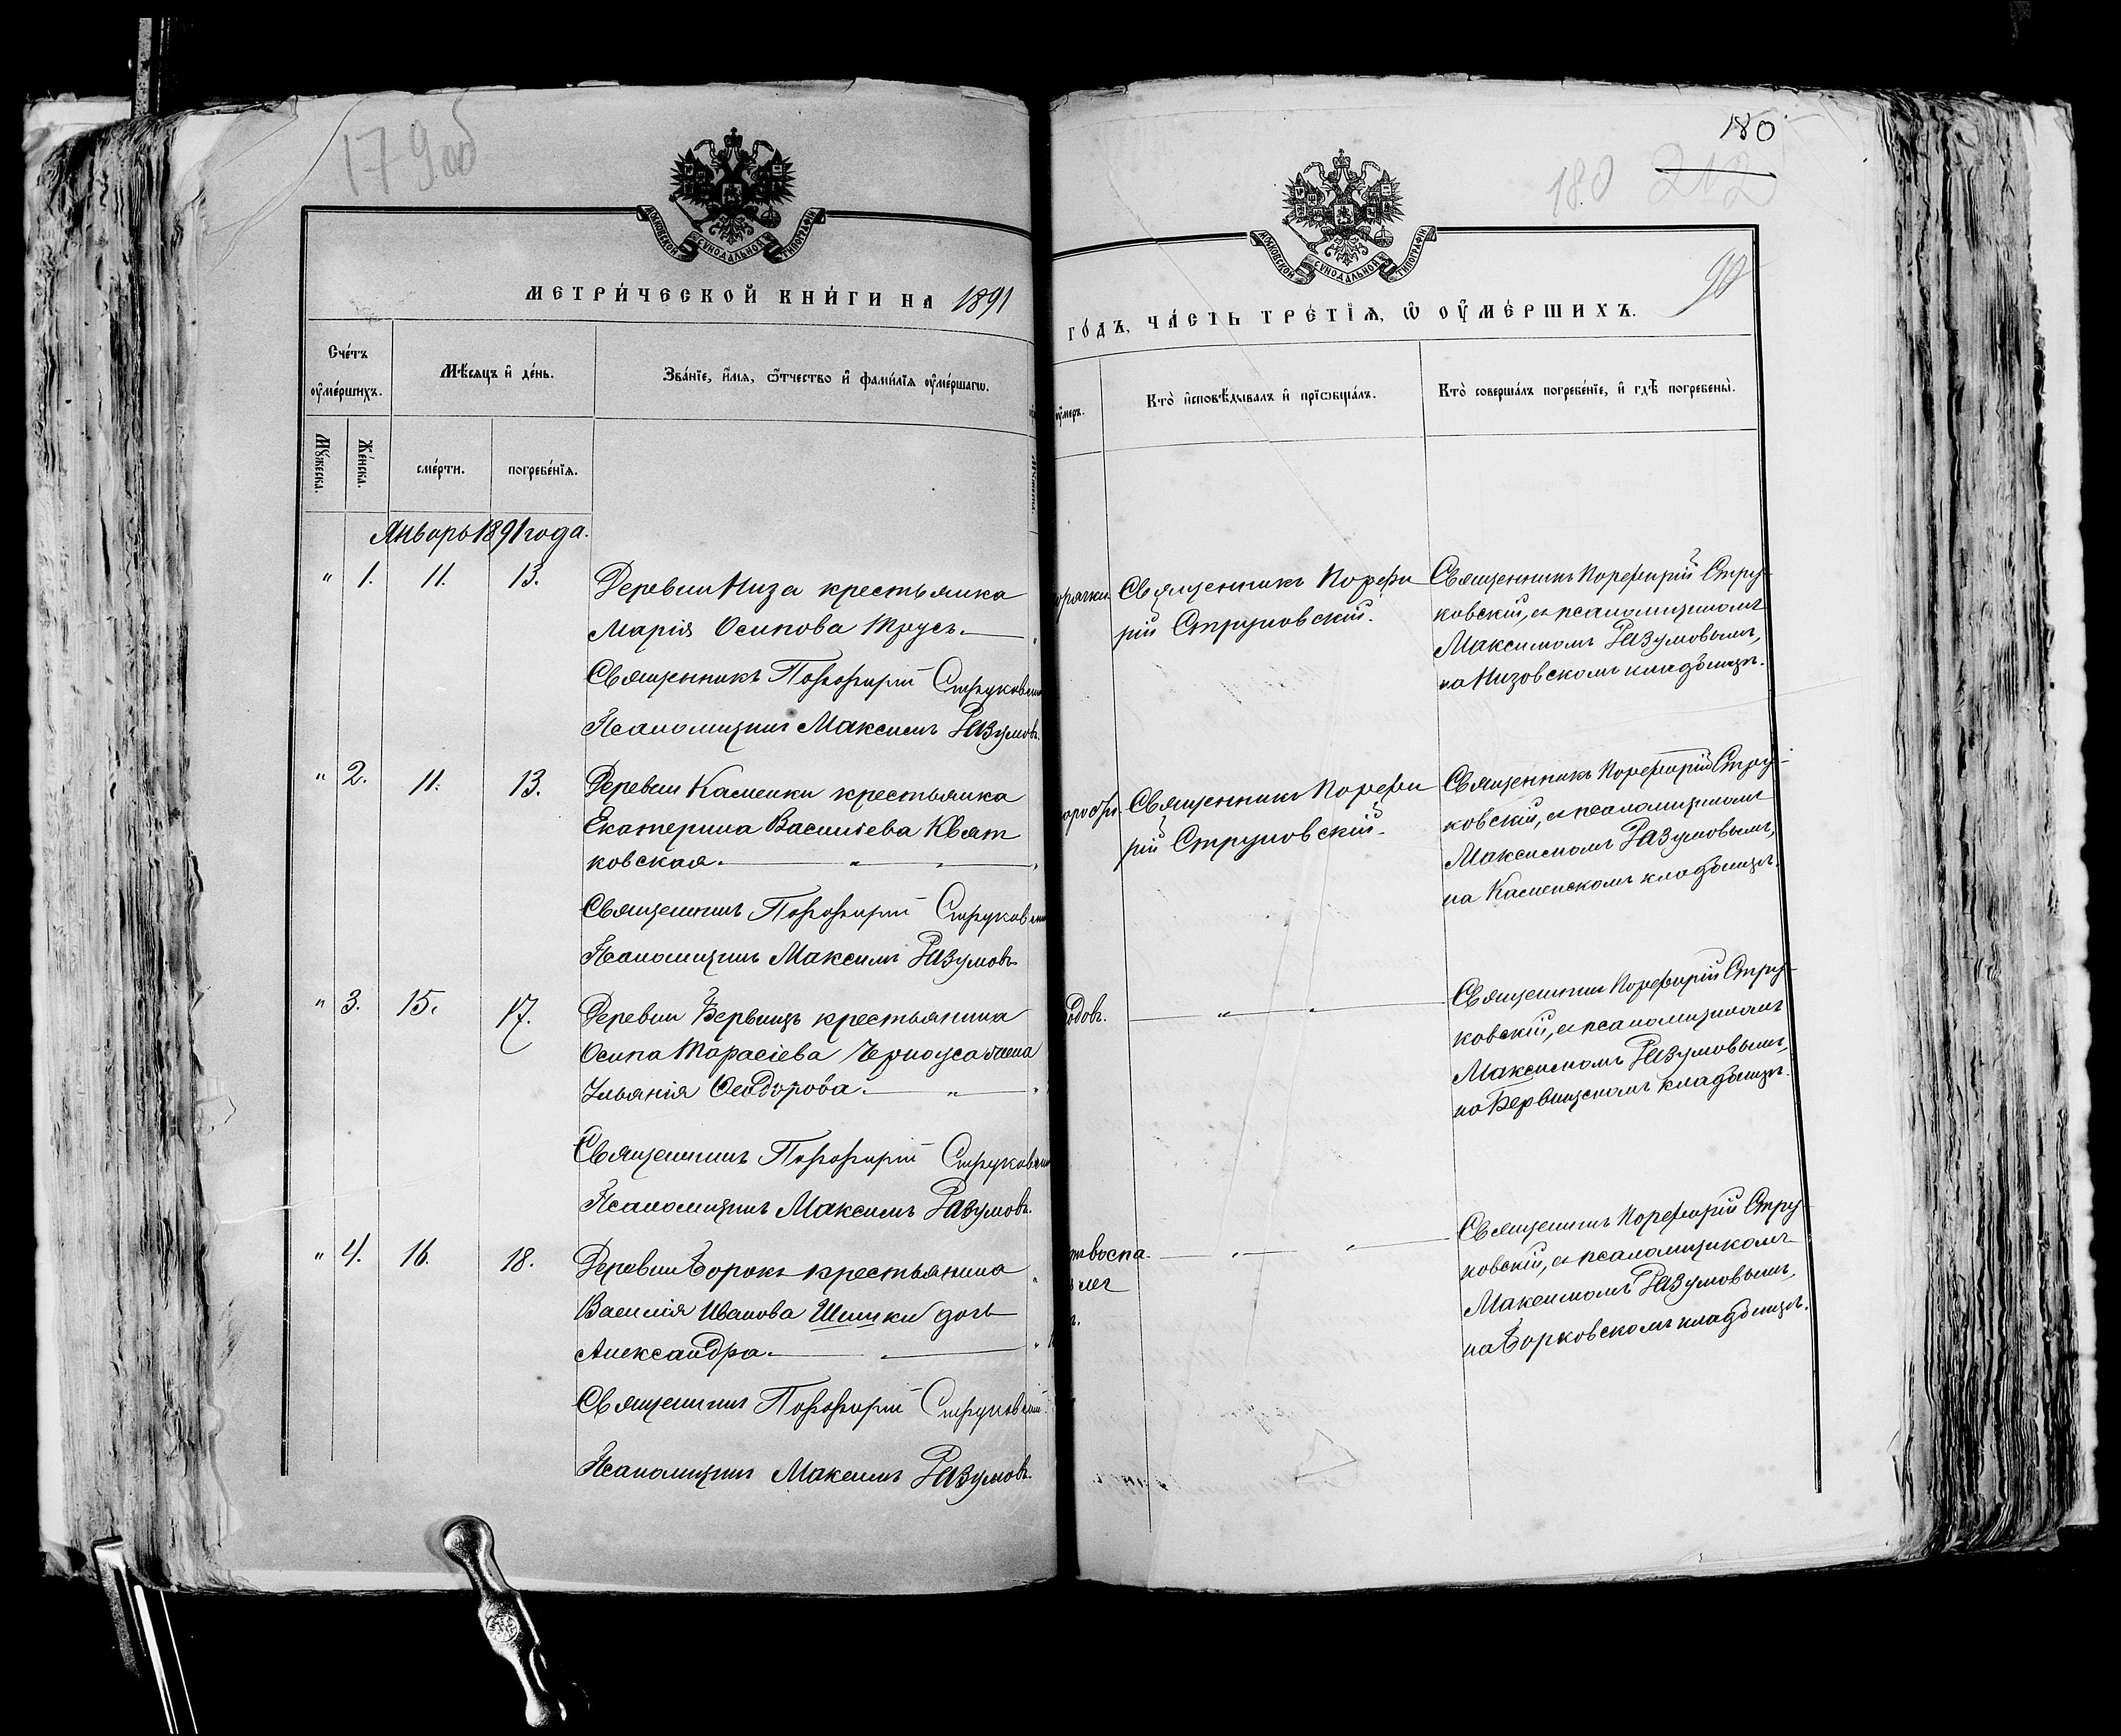 179об
МОСКОВСКОЙ СѴНОДАЛЬНОЙ ТИПОГРАФІИ
МЕТРИ́ЧЕСКОЙ КНИ́ГИ НА 1891
Сче́тъ оу҆ме́ршихъ.
Мѣ́сяцъ и҆ де́нь.
Зва́нїе, и҆́мя, ѻ҆́тчество и҆ фами́лїя оу҆ме́ршагѡ.
Мꙋ́жеска.
Же́нска.
сме́рти.
погребе́нїѧ.
Январь 1891 года.
" 1. 11. 13.
Деревни Низа крестьянка
Марія Осипова Трусь.
Священникъ Порфирій Струковскій
Псаломщикъ Максимъ Разумовъ.
" 2. 11. 13.
Деревни Каменки крестьянка
Екатерина Василіева Квят
ковская.
Священникъ Порфирій Струковскій
Псаломщикъ Максимъ Разумовъ.
" 3. 15. 17.
Деревни Бервищъ крестьянина
Осипа Тарасіева Черноуса жена
Ульянія Ѳеодорова.
Священникъ Порфирій Струковскій
Псаломщикъ Максимъ Разумовъ.
" 4. 16. 18.
Деревни Борокъ крестьянина
Василія Иванова Шишки дочь
Александра.
Священникъ Порфирій Струковскій.
Псаломщикъ Максимъ Разумовъ.
180
180 212
90
МОСКОВСКОЙ СѴНОДАЛЬНОЙ ТИПОГРАФІИ
ГО́ДЪ, ЧА́СТЬ ТРЕ́ТЇѦ, Ѽ ОУ҆МЕ́РШИХЪ.
оу҆́меръ.
Кто̀ и҆сповѣ́дывалъ и҆ прїѡбща́лъ.
Кто̀ соверша́лъ погребе́нїе, и҆ гдѣ̀ погребены̀.
орячки.
Священникъ Порфи
рій Струковскій.
Священникъ Порфирій Стру-
ковскій, съ псаломщикомъ
Максимомъ Разумовымъ,
на Низовскомъ кладбищѣ.
Священникъ Порфи
рій Струковскій.
Священникъ Порфирій Стру-
ковскій, съ псаломщикомъ
Максимомъ Разумовымъ,
на Каменскомъ кладбищѣ.
одовъ.
Священникъ Порфирій Стру-
ковскій, съ псаломщикомъ
Максимомъ Разумовымъ,
на Бервищскомъ кладбищѣ.
воспа
лег
Священникъ Порфирій Стру-
ковскій, съ псаломщикомъ
Максимомъ Разумовымъ,
на Борковскомъ кладбищѣ.